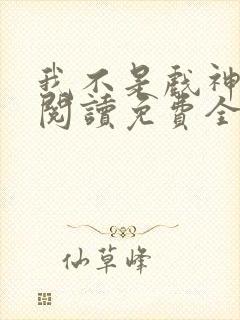 我不是戲神
閱讀免費全
仙草峰